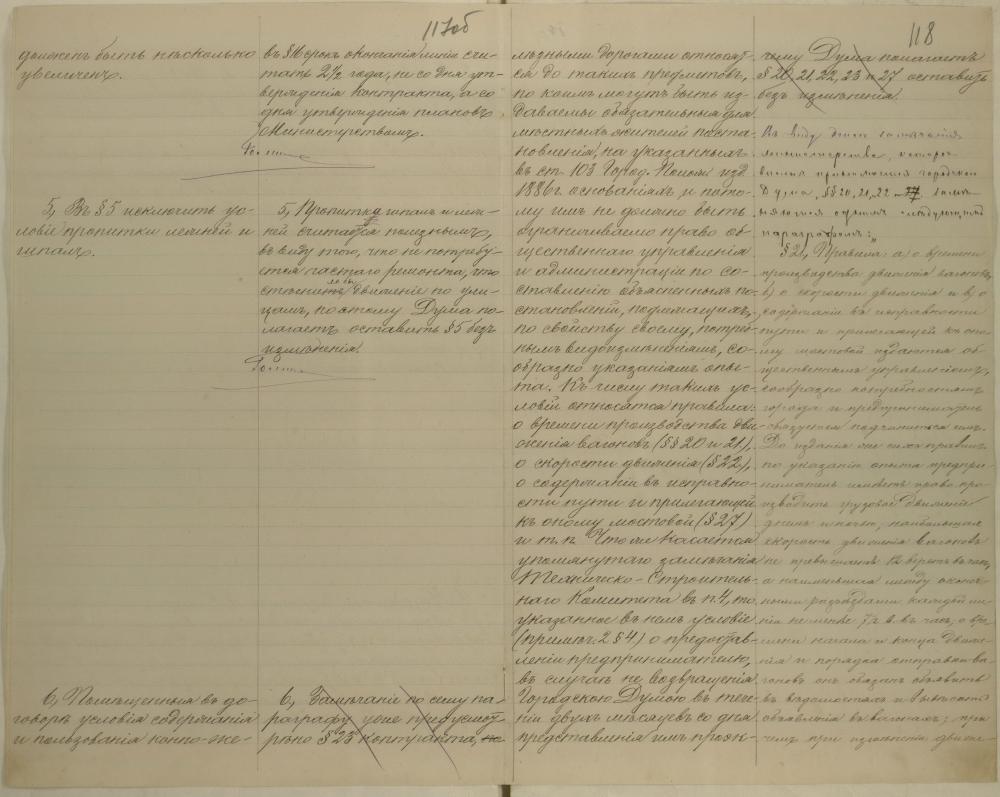 117об
долженъ быть нѣсколько
увеличенъ.
5, Въ § 5 исключить ус-
ловіе пропитки лежней и
шпалъ.
6, Помѣщенныя въ до-
говорѣ условія содержанія
и пользованія конно-же-
въ § 16 срокъ окончанія линіи счи-
тать 2½ года, не со дня ут-
вержденія контракта, а со
дня утвержденія плановъ
Министерствомъ.
5, Пропитка шпалъ и леж-
ней считается полезнымъ,
въ виду того, что не потребу-
ется частаго ремонта, что
стѣснило бы движеніе по ули-
цамъ, поэтому Дума по-
лагаетъ оставить § 5 безъ
измѣненія.
6, Замѣчаніе по сему па-
рографу уже предусмот-
рѣно § 23 контракта, не
118
лѣзными дорогами относят-
ся до такихъ предметовъ,
по коимъ могутъ быть из-
даваемы обязательныя для
мѣстныхъ жителей поста-
новленія, на указанныхъ
въ ст. 103 Город. Полож. изд.
1886 г. основаніяхъ, и пото-
му имъ не должно быть
ограничиваемо право об-
щественнаго управленія
и администраціи по со-
ставленію объясненныхъ по-
становленій, подлежащихъ,
по свойству своему, потреб-
нымъ видоизмѣненіямъ, со-
образно указаніямъ опы-
та. Къ числу такихъ ус-
ловій относятся правила:
о времени производства дви-
женія вагоновъ (§§ 20 и 21),
о скорости движенія (§ 22),
о содержаніи въ исправно-
сти пути и прилегающей
къ оному мостовой (§ 27)
и т. п. Что же касается
упомянутаго замѣчанія
Техническо-Строитель-
наго Комитета въ п. 4, то
указанное въ немъ условіе
(примѣч. 2 § 4) о предостав-
леніи предпринимателю,
въ случаѣ не возвращенія
Городскою Думою въ тече-
ніи двухъ мѣсяцевъ со дня
представленія имъ проэк-
чему Дума полагаетъ
§ 20, 21, 22, 23 и 27 оставить
безъ измѣненія.
Въ виду сего замѣчанія
Министерства, которое
Дума, §§ 20, 21, 22 и 27 замѣ-
няются однимъ слѣдующимъ
параграфомъ:
§ 21, Правила: а) о времени
производства движенія вагоновъ,
б) о скорости движенія и в) о
содержаніи въ исправности
пути и прилегающей къ оно-
му мостовой издаются об-
щественнымъ управленіемъ,
сообразно потребностямъ
города и предприниматель
обязуется подчиняться имъ.
До изданія же сихъ правилъ
по указанію опыта предпри-
ниматель имѣетъ право про-
изводить грузовое движеніе
днемъ и ночью, наибольшая
скорость движенія вагоновъ
не превышаетъ 12 верстъ въ часъ,
а наименьшая между оконеч-
ными разъѣздами каждой ли-
ніи не менѣе 7½ в. въ часъ, о вре-
мени начала и конца движе-
нія и порядка отправки ва-
гоновъ онъ обязанъ объявить
въ вѣдомостяхъ и вывѣсить
объявленія въ вагонахъ; при-
чемъ при измѣненіи движе-